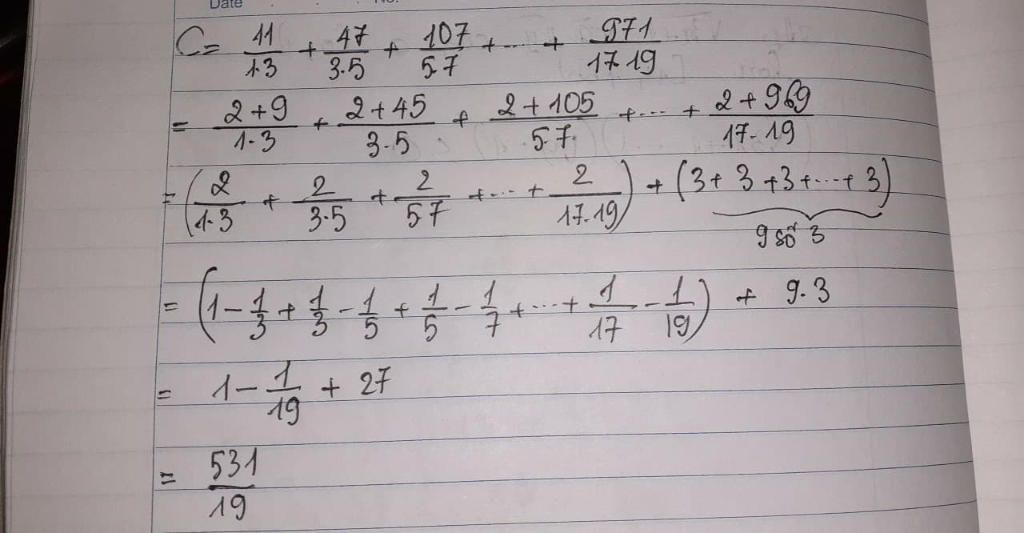 Date No.
C = 11/1·3 + 47/3·5 + 107/5·7 + ... + 971/17·19
= 2+9/1·3 + 2+45/3·5 + 2+105/5·7 + ... + 2+969/17·19
= (2/1·3 + 2/3·5 + 2/5·7 + ... + 2/17·19) + (3+3+3+...+3)
9 số 3
= (1 - 1/3 + 1/3 - 1/5 + 1/5 - 1/7 + ... + 1/17 - 1/19) + 9·3
= 1 - 1/19 + 27
= 531/19